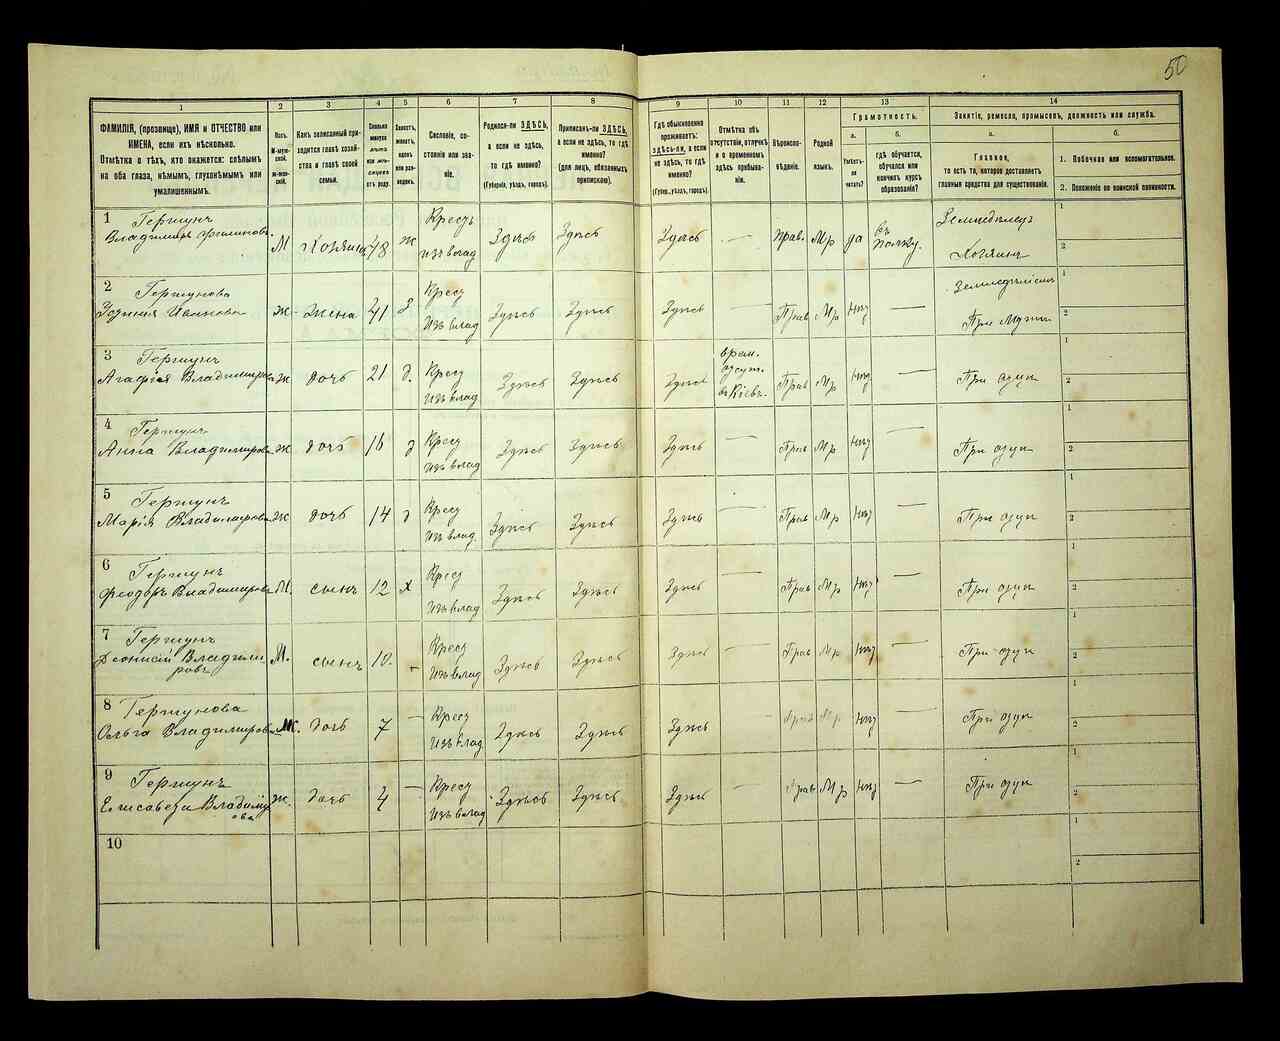 50
1 2 3 4 5 6 7 8 9 10 11 12 13 14
ФАМИЛІЯ, (прозвище), ИМЯ и ОТЧЕСТВО или
ИМЕНА, если ихъ нѣсколько.
Отмѣтка о тѣхъ, кто окажется: слѣпымъ
на оба глаза, нѣмымъ, глухонѣмымъ или
умалишеннымъ.
Полъ.
М-муж-
ской.
Ж-жен-
скій.
Какъ записанный при-
ходится главѣ хозяй-
ства и главѣ своей
семьи.
Сколько
минуло
лѣтъ
или мѣ-
сяцевъ
отъ роду.
Холостъ,
женатъ,
вдовъ
или раз-
веденъ.
Сословіе, со-
стояніе или зва-
ніе.
Родился-ли ЗДѢСЬ,
а если не здѣсь,
то гдѣ именно?
(Губернія, уѣздъ, городъ).
Приписанъ-ли ЗДѢСЬ,
а если не здѣсь, то гдѣ
именно?
(для лицъ, обязанныхъ
припискою).
Гдѣ обыкновенно
проживаетъ:
ЗДѢСЬ-ЛИ, а если
не здѣсь, то гдѣ
именно?
(Губер., уѣздъ, городъ).
Отмѣтка объ
отсутствіи, отлучкѣ
и о временномъ
здѣсь пребыва-
ніи.
Вѣроиспо-
вѣданіе.
Родной
языкъ.
Грамотность.
а.
Умѣетъ-
ли
читать?
б.
гдѣ обучается,
обучался или
кончилъ курсъ
образованія?
Занятіе, ремесло, промыселъ, должность или служба.
а.
Главное,
то есть то, которое доставляетъ
главныя средства для существованія.
б.
1. Побочное или вспомогательное.
2. Положеніе по воинской повинности.
1 Гершунъ
Владимиръ Филиповъ М Хозяинъ 48 ж Крестъ изъ влад Здѣсь Здѣсь Здѣсь — Прав. Мр да въ полку. Земледѣлецъ Хозяинъ 1 2
2 Гершунова
Ивановна ж жена 41 з Крест Изъ влад Здѣсь Здѣсь Здѣсь — Прав Мр нѣт — Земледѣліемъ При мужи 1 2
3 Гершунъ
Агафія Владимирова ж дочь 21 д. Крест Изъ влад Здѣсь Здѣсь Здѣсь врем. отсут. въ Кіевъ. Прав Мр нѣт — При отцѣ 1 2
4 Гершунъ
Анна Владимирова ж дочь 16 д Крест Изъ влад Здѣсь Здѣсь Здѣсь — Прав Мр нѣт — При отцѣ 1 2
5 Гершунъ
Марія Владимирова ж дочь 14 д Крест Изъ влад. Здѣсь Здѣсь Здѣсь — Прав Мр нѣт — При отцѣ 1 2
6 Гершунъ
Феодоръ Владимировъ М. сынъ 12 х Крест Изъ влад Здѣсь Здѣсь Здѣсь — Прав Мр нѣт — При отцѣ 1 2
7 Гершунъ
Діонисій Владими
ровъ М. сынъ 10. — Крест Изъ влад Здѣсь Здѣсь Здѣсь — Прав Мр нѣт — При отцѣ 1 2
8 Гершунова
Ольга Владимирова ж. дочь 7 — Крест Изъ влад Здѣсь Здѣсь Здѣсь — Прав Мр нѣт — При отцѣ 1 2
9 Гершунъ
Елисавета Владимир
ова ж. дочь 4 — Крест Изъ влад Здѣсь Здѣсь Здѣсь — Прав Мр нѣт — При отцѣ 1 2
10 1 2